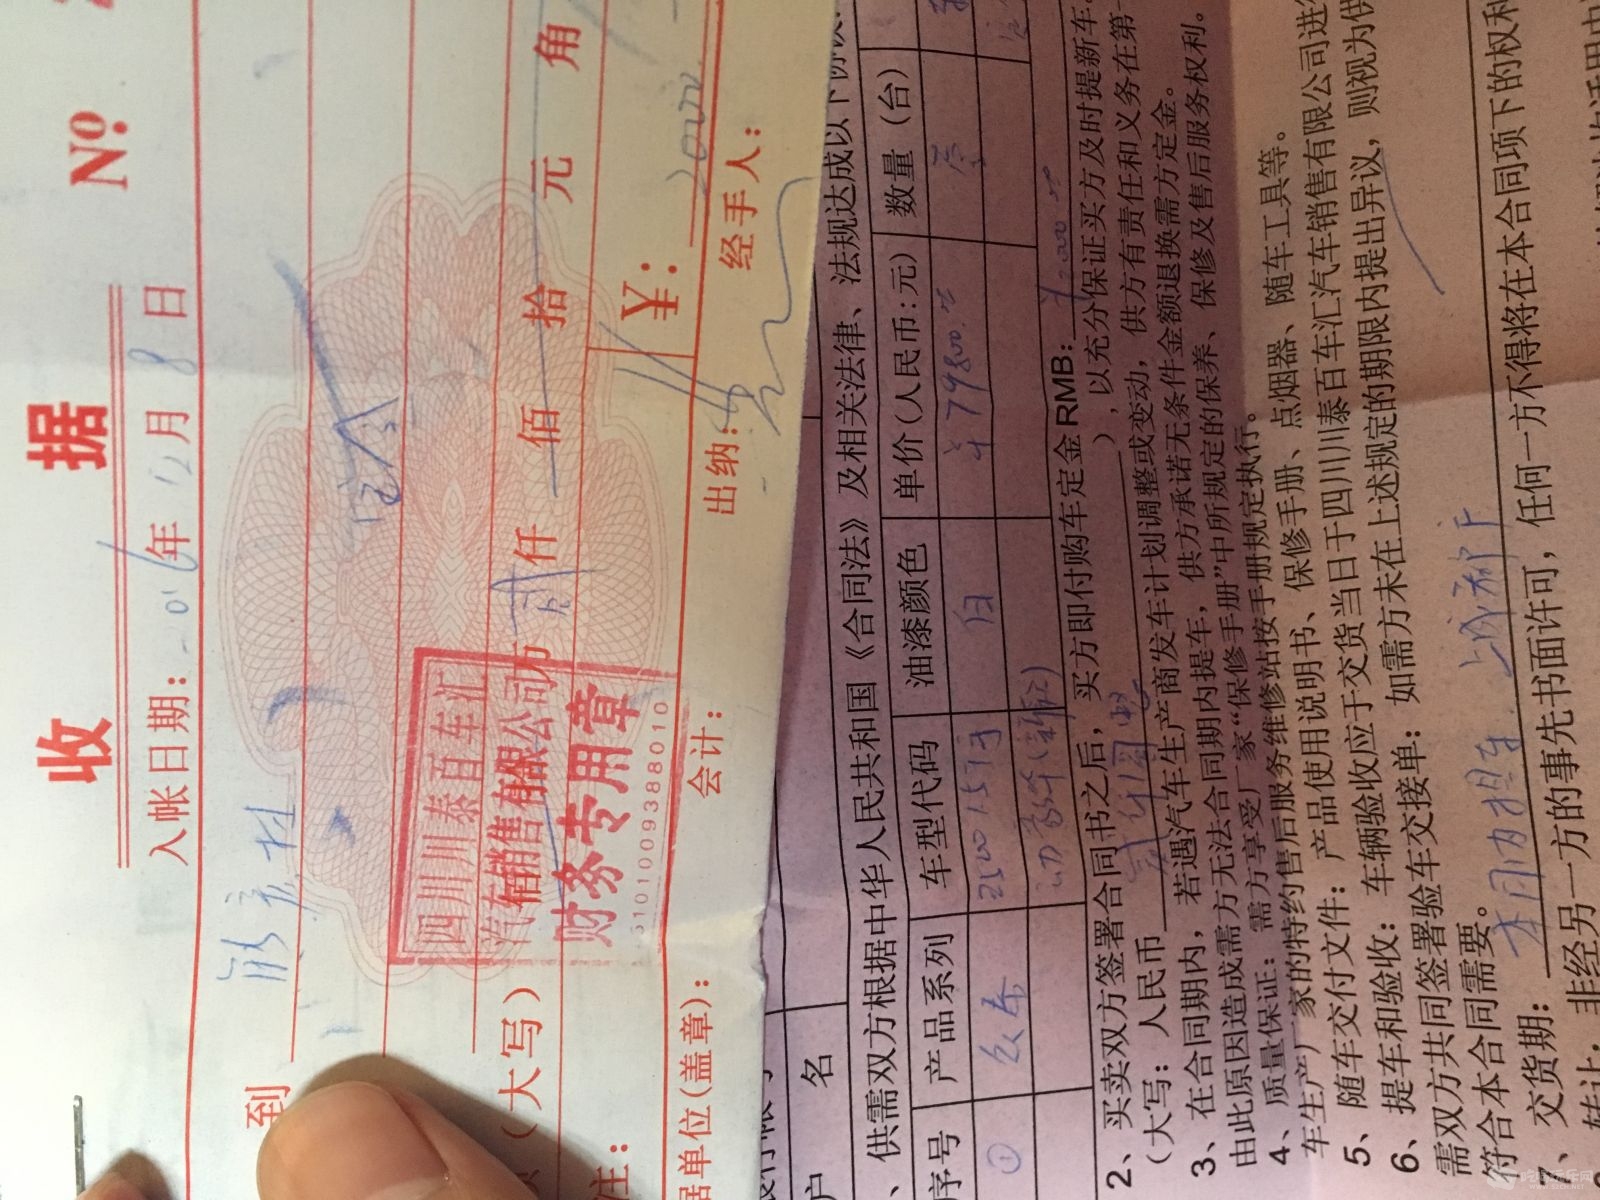 收 据
№
入帐日期：2016年12月8日
到
定金
（大写）
万 贰 仟 佰 拾 元 角
¥：2000
注：
四川川泰百车汇
汽车销售有限公司
财务专用章
5101009388010
据单位(盖章)：
会计：
出纳：
经手人：
户 名
、供需双方根据中华人民共和国《合同法》及相关法律、法规达成以下协议
序号 产品系列 车型代码 油漆颜色 单价(人民币:元) 数量（台）
① 白 ¥79800.00 壹
2、买卖双方签署合同书之后，买方即付购车定金RMB：¥2000
（大写：人民币 ），以充分保证买方及时提新车。
3、在合同期内，若遇汽车生产商发车计划调整或变动，供方有责任和义务在第一
由此原因造成需方无法合同期内提车，供方承诺无条件金额退换需方定金。
4、质量保证：需方享受厂家“保修手册”中所规定的保养、保修及售后服务权利。
车生产厂家的特约售后服务维修站按手册规定执行。
5、随车交付文件：产品使用说明书、保修手册、点烟器、随车工具等。
6、提车和验收：车辆验收应于交货当日于四川川泰百车汇汽车销售有限公司进行
需双方共同签署验车交接单：如需方未在上述规定的期限内提出异议，则视为供
符合本合同需要。
7、交货期：本月内提车
转让：非经另一方的事先书面许可，任何一方不得将在本合同项下的权利